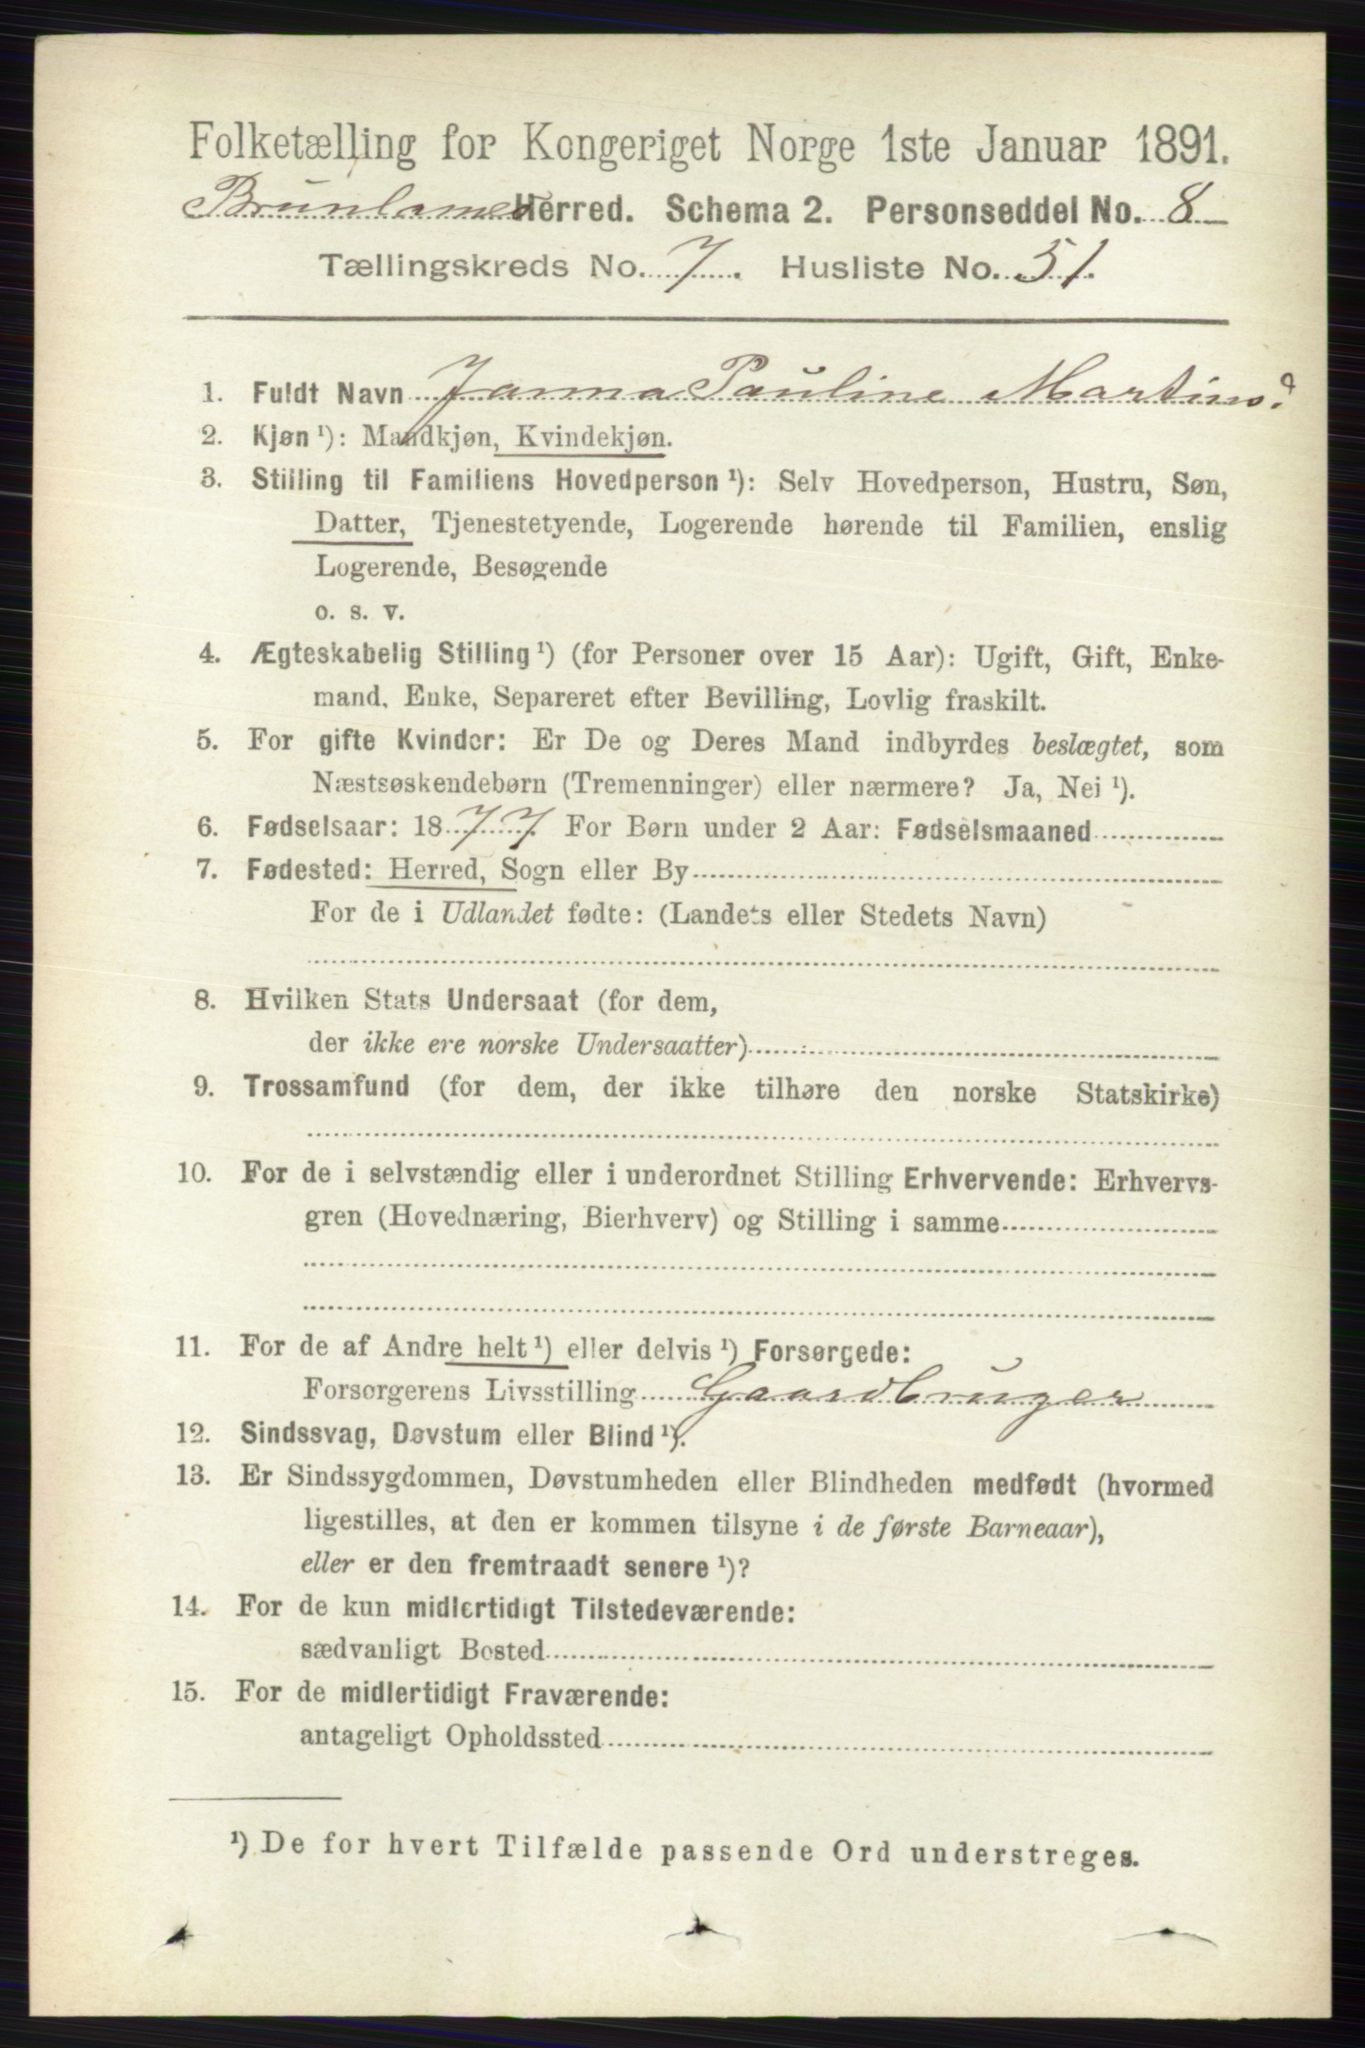 Folketælling for Kongeriget Norge 1ste Januar 1891.
Brunlanes Herred. Schema 2. Personseddel No. 8
Tællingskreds No. 7. Husliste No. 51.
1. Fuldt Navn Janna Pauline Martinsd
2. Kjøn ¹): Mandkjøn, Kvindekjøn.
3. Stilling til Familiens Hovedperson ¹): Selv Hovedperson, Hustru, Søn,
Datter, Tjenestetyende, Logerende hørende til Familien, enslig
Logerende, Besøgende
o. s. v.
4. Ægteskabelig Stilling ¹) (for Personer over 15 Aar): Ugift, Gift, Enke-
mand, Enke, Separeret efter Bevilling, Lovlig fraskilt.
5. For gifte Kvinder: Er De og Deres Mand indbyrdes beslægtet, som
Næstsøskendebørn (Tremenninger) eller nærmere? Ja, Nei ¹).
6. Fødselsaar: 1877. For Børn under 2 Aar: Fødselsmaaned
7. Fødested: Herred, Sogn eller By
For de i Udlandet fødte: (Landets eller Stedets Navn)
8. Hvilken Stats Undersaat (for dem,
der ikke ere norske Undersaatter)
9. Trossamfund (for dem, der ikke tilhøre den norske Statskirke)
10. For de i selvstændig eller i underordnet Stilling Erhvervende: Erhvervs-
gren (Hovednæring, Bierhverv) og Stilling i samme
11. For de af Andre helt ¹) eller delvis ¹) Forsørgede:
Forsørgerens Livsstilling Gaardbruger
12. Sindssvag, Døvstum eller Blind ¹).
13. Er Sindssygdommen, Døvstumheden eller Blindheden medfødt (hvormed
ligestilles, at den er kommen tilsyne i de første Barneaar),
eller er den fremtraadt senere ¹)?
14. For de kun midlertidigt Tilstedeværende:
sædvanligt Bosted
15. For de midlertidigt Fraværende:
antageligt Opholdssted
¹) De for hvert Tilfælde passende Ord understreges.